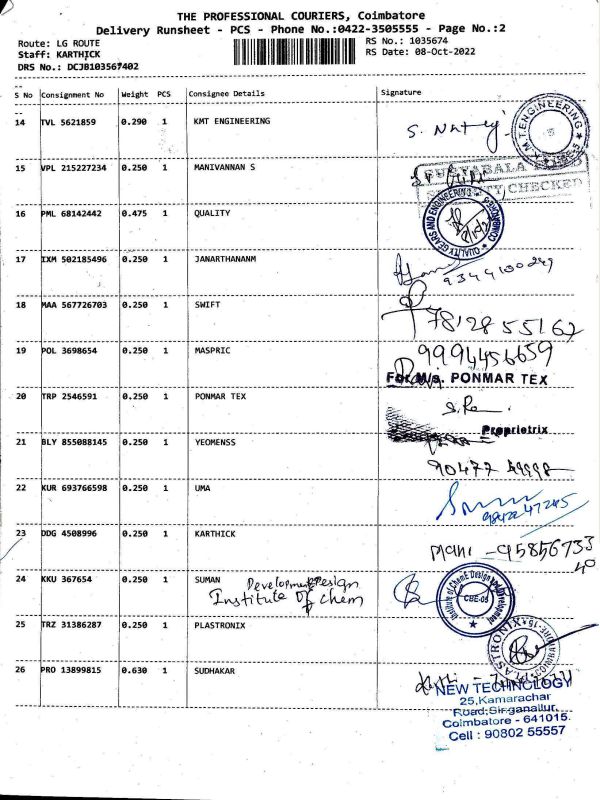 THE PROFESSIONAL COURIERS, Coimbatore
Delivery Runsheet - PCS - Phone No.:0422-3505555 - Page No.:2
Route: LG ROUTE
RS No.: 1035674
Staff: KARTHICK
RS Date: 08-Oct-2022
DRS No.: DCJB103567402
S No Consignment No Weight PCS Consignee Details Signature
14 TVL 5621859 0.290 1 KMT ENGINEERING
K.M.T.ENGINEERING
15 VPL 215227234 0.250 1 MANIVANNAN S
CHECKED
16 PML 68142442 0.475 1 QUALITY
QUALITY GEARS AND ENGINEERING
17 IXM 502185496 0.250 1 JANARTHANANM
9344100249
18 MAA 567726703 0.250 1 SWIFT
78128 55162
19 POL 3698654 0.250 1 MASPRIC
9994456659
For M/s. PONMAR TEX
20 TRP 2546591 0.250 1 PONMAR TEX
Proprietrix
21 BLY 855088145 0.250 1 YEOMENSS
22 KUR 693766598 0.250 1 UMA
23 DDG 4508996 0.250 1 KARTHICK
Mani - 95856733
40
24 KKU 367654 0.250 1 SUMAN
Development Design
Institute Of chem
Institute of ChemE Design and Development
CBE-05
25 TRZ 31386287 0.250 1 PLASTRONIX
PLASTRONIX
26 PRO 13899815 0.630 1 SUDHAKAR
NEW TECHNOLOGY
25, Kamarachar
Road, Singanallur,
Coimbatore - 641015.
Cell : 90802 55557